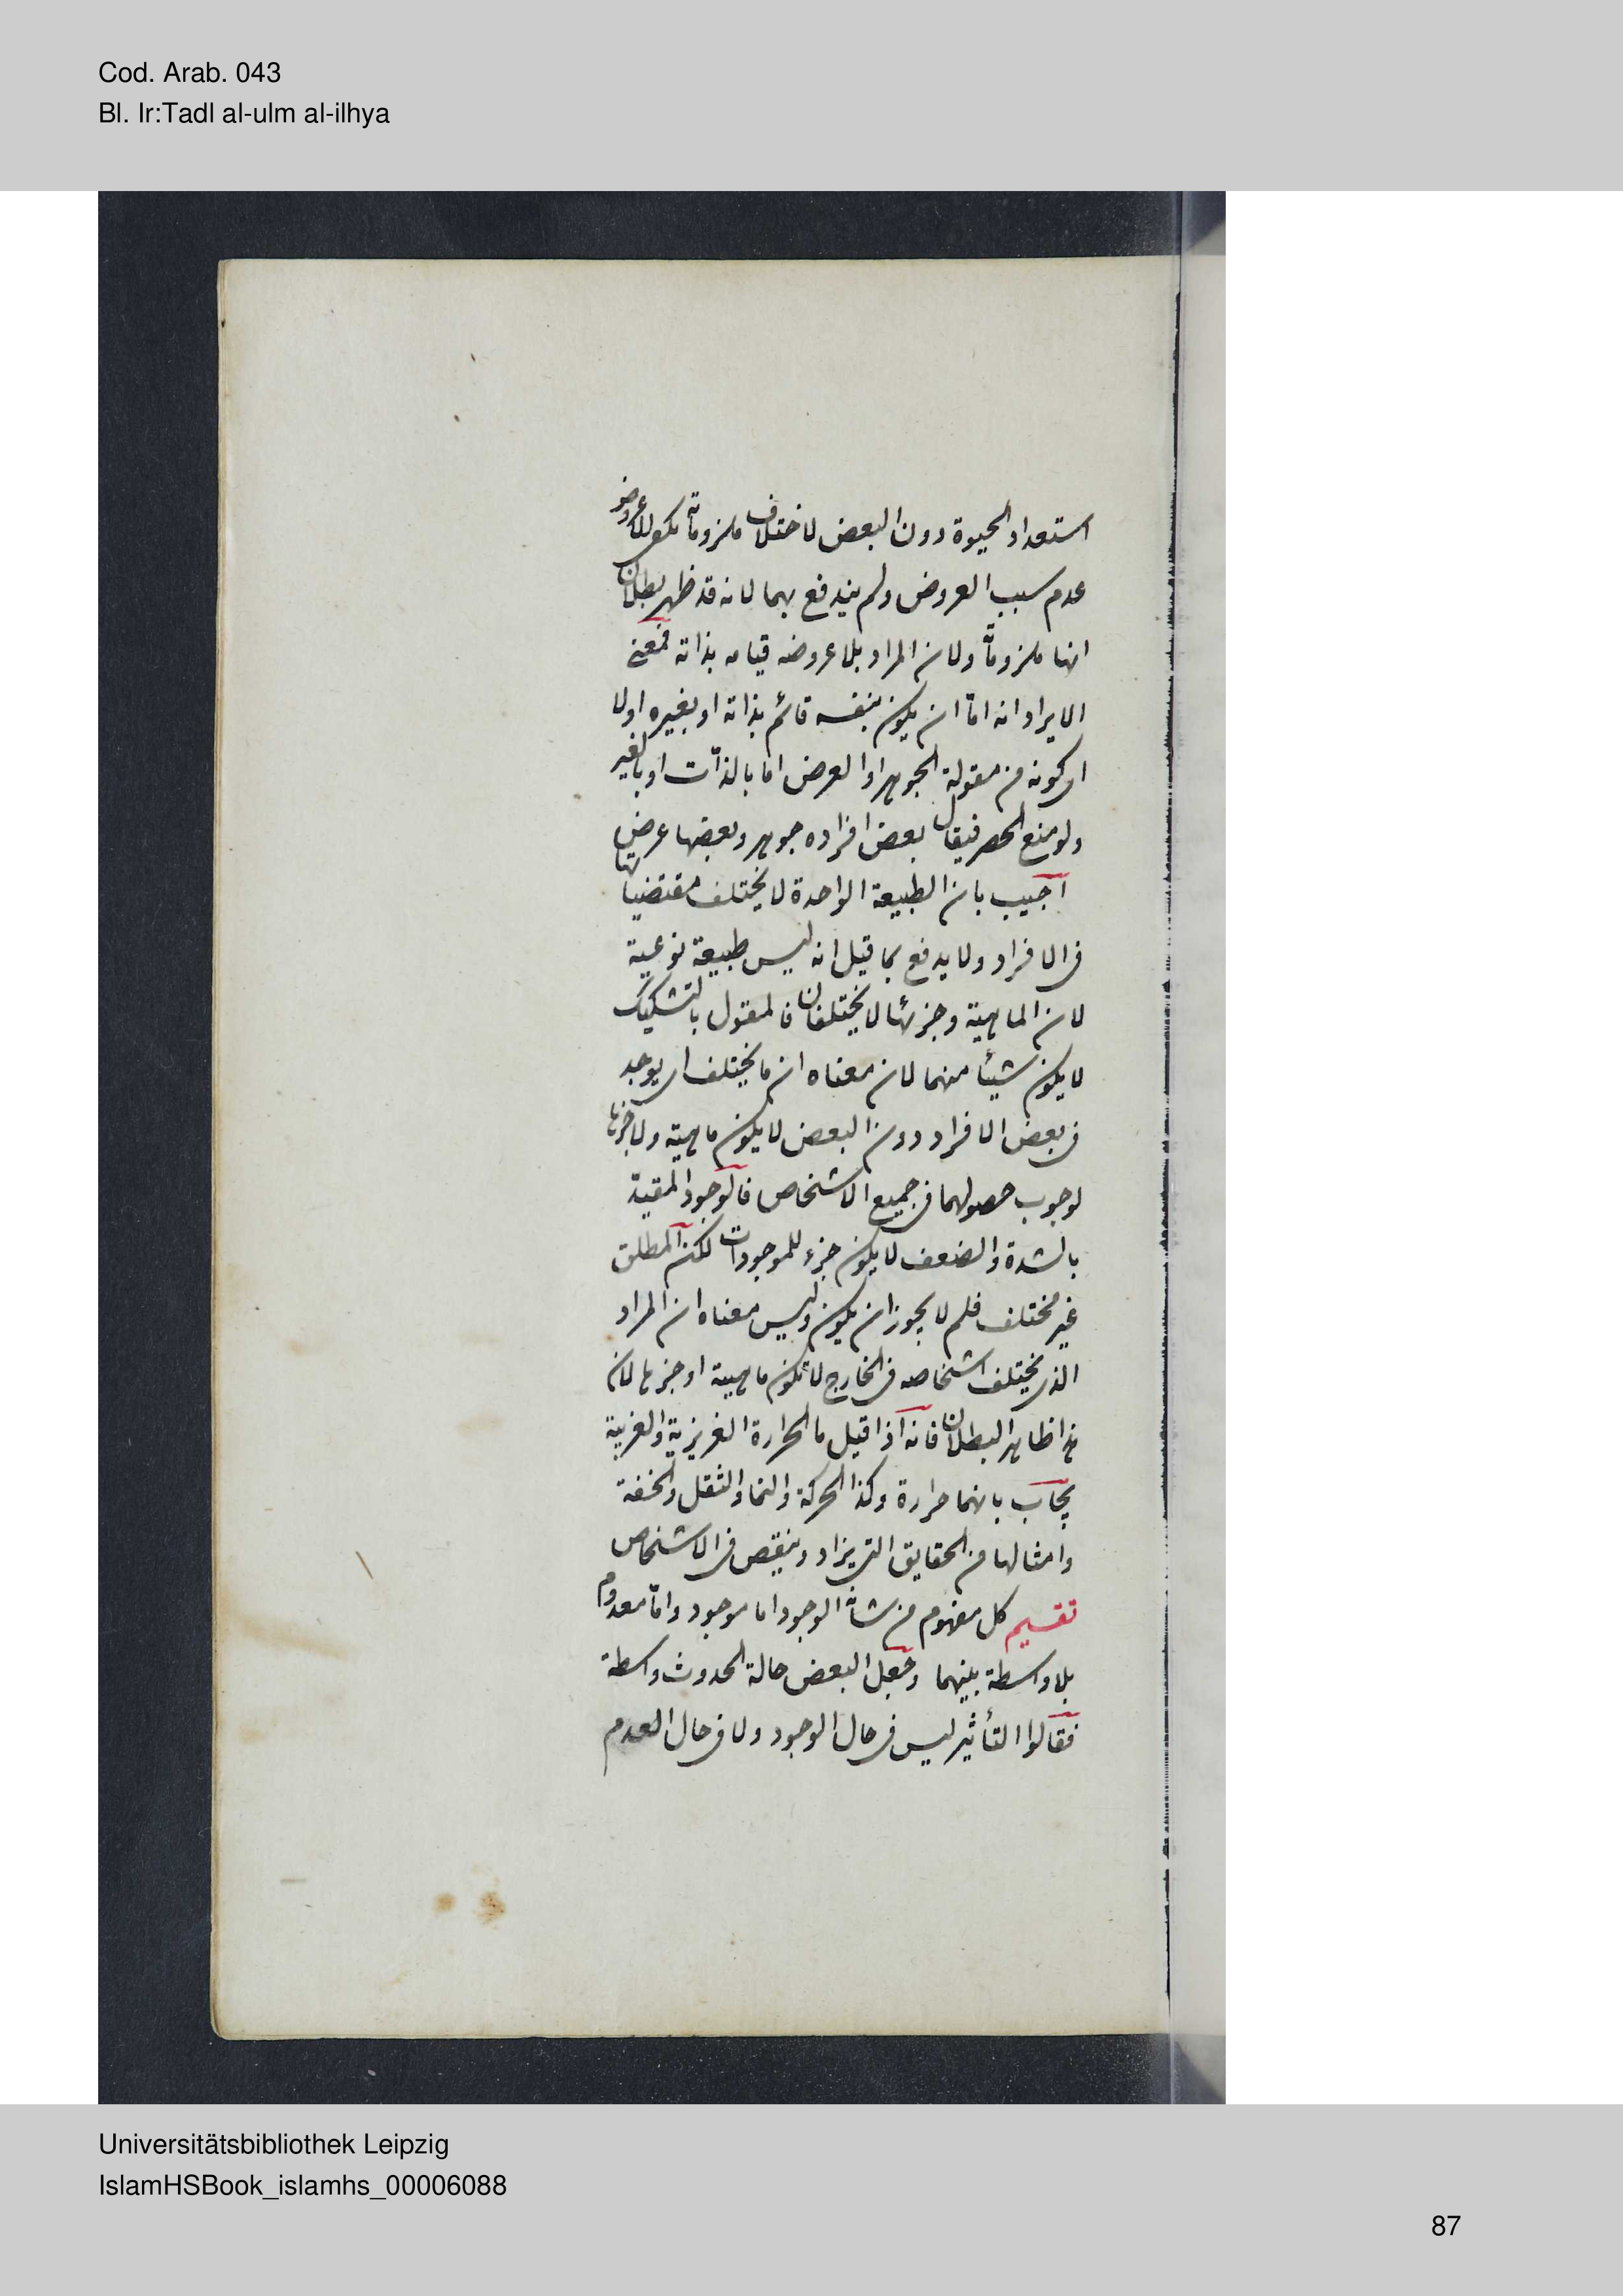 Cod. Arab. 043
Bl. Ir:Tadl al-ulm al-ilhya
استعداد الحيوة دون البعض لاختلاف ملزوماته
عدم سبب العروض ولم يندفع بهما لانه قد ظهر بطلان
انها ملزوماته ولان المراد بلا عروضه قيامه بذاته فمعنى
الايراد انه اما ان يكون بنفسه قائم بذاته او بغيره اولا
اى كونه من مقولة الجوهر او العرض اما بالذات او بالغير
ولو منع الحصر فيقال بعض افراده جوهر وبعضها عرض
اجيب بان الطبيعة الواحدة لا يختلف مقتضياتها
فى الافراد ولا يدفع بما قيل انه ليس طبيعة نوعية
لان الماهية وجزئها لا يختلفان فالمقول بالتشكيك
لا يكون شيئا منهما لان معناه ان ما يختلف اى يوجد
فى بعض الافراد دون البعض لا يكون ماهية ولا جزئها
لوجوب حصولهما فى جميع الاشخاص فالوجود المقيد
بالشدة والضعف لا يكون جزء للموجودات لكن المطلق
غير مختلف فلم لا يجوز ان يكون وليس معناه ان المراد
الذى يختلف اشخاصه فى الخارج لا تكون ماهية او جزءها لان
هذا ظاهر البطلان فانه اذا قيل ما الحرارة الغريزية والغريبة
يجاب بانهما حرارة وكذا الحركة والنما والثقل والخفة
وامثالها من الحقايق التى يزاد وينقص فى الاشخاص
تقسيم كل مفهوم من شانه الوجود اما موجود واما معدوم
بلا واسطة بينهما وجعل البعض حالة الحدوث واسطة
فقالوا التأثير ليس فى حال الوجود ولا فى حال العدم
Universitätsbibliothek Leipzig
IslamHSBook_islamhs_00006088
87